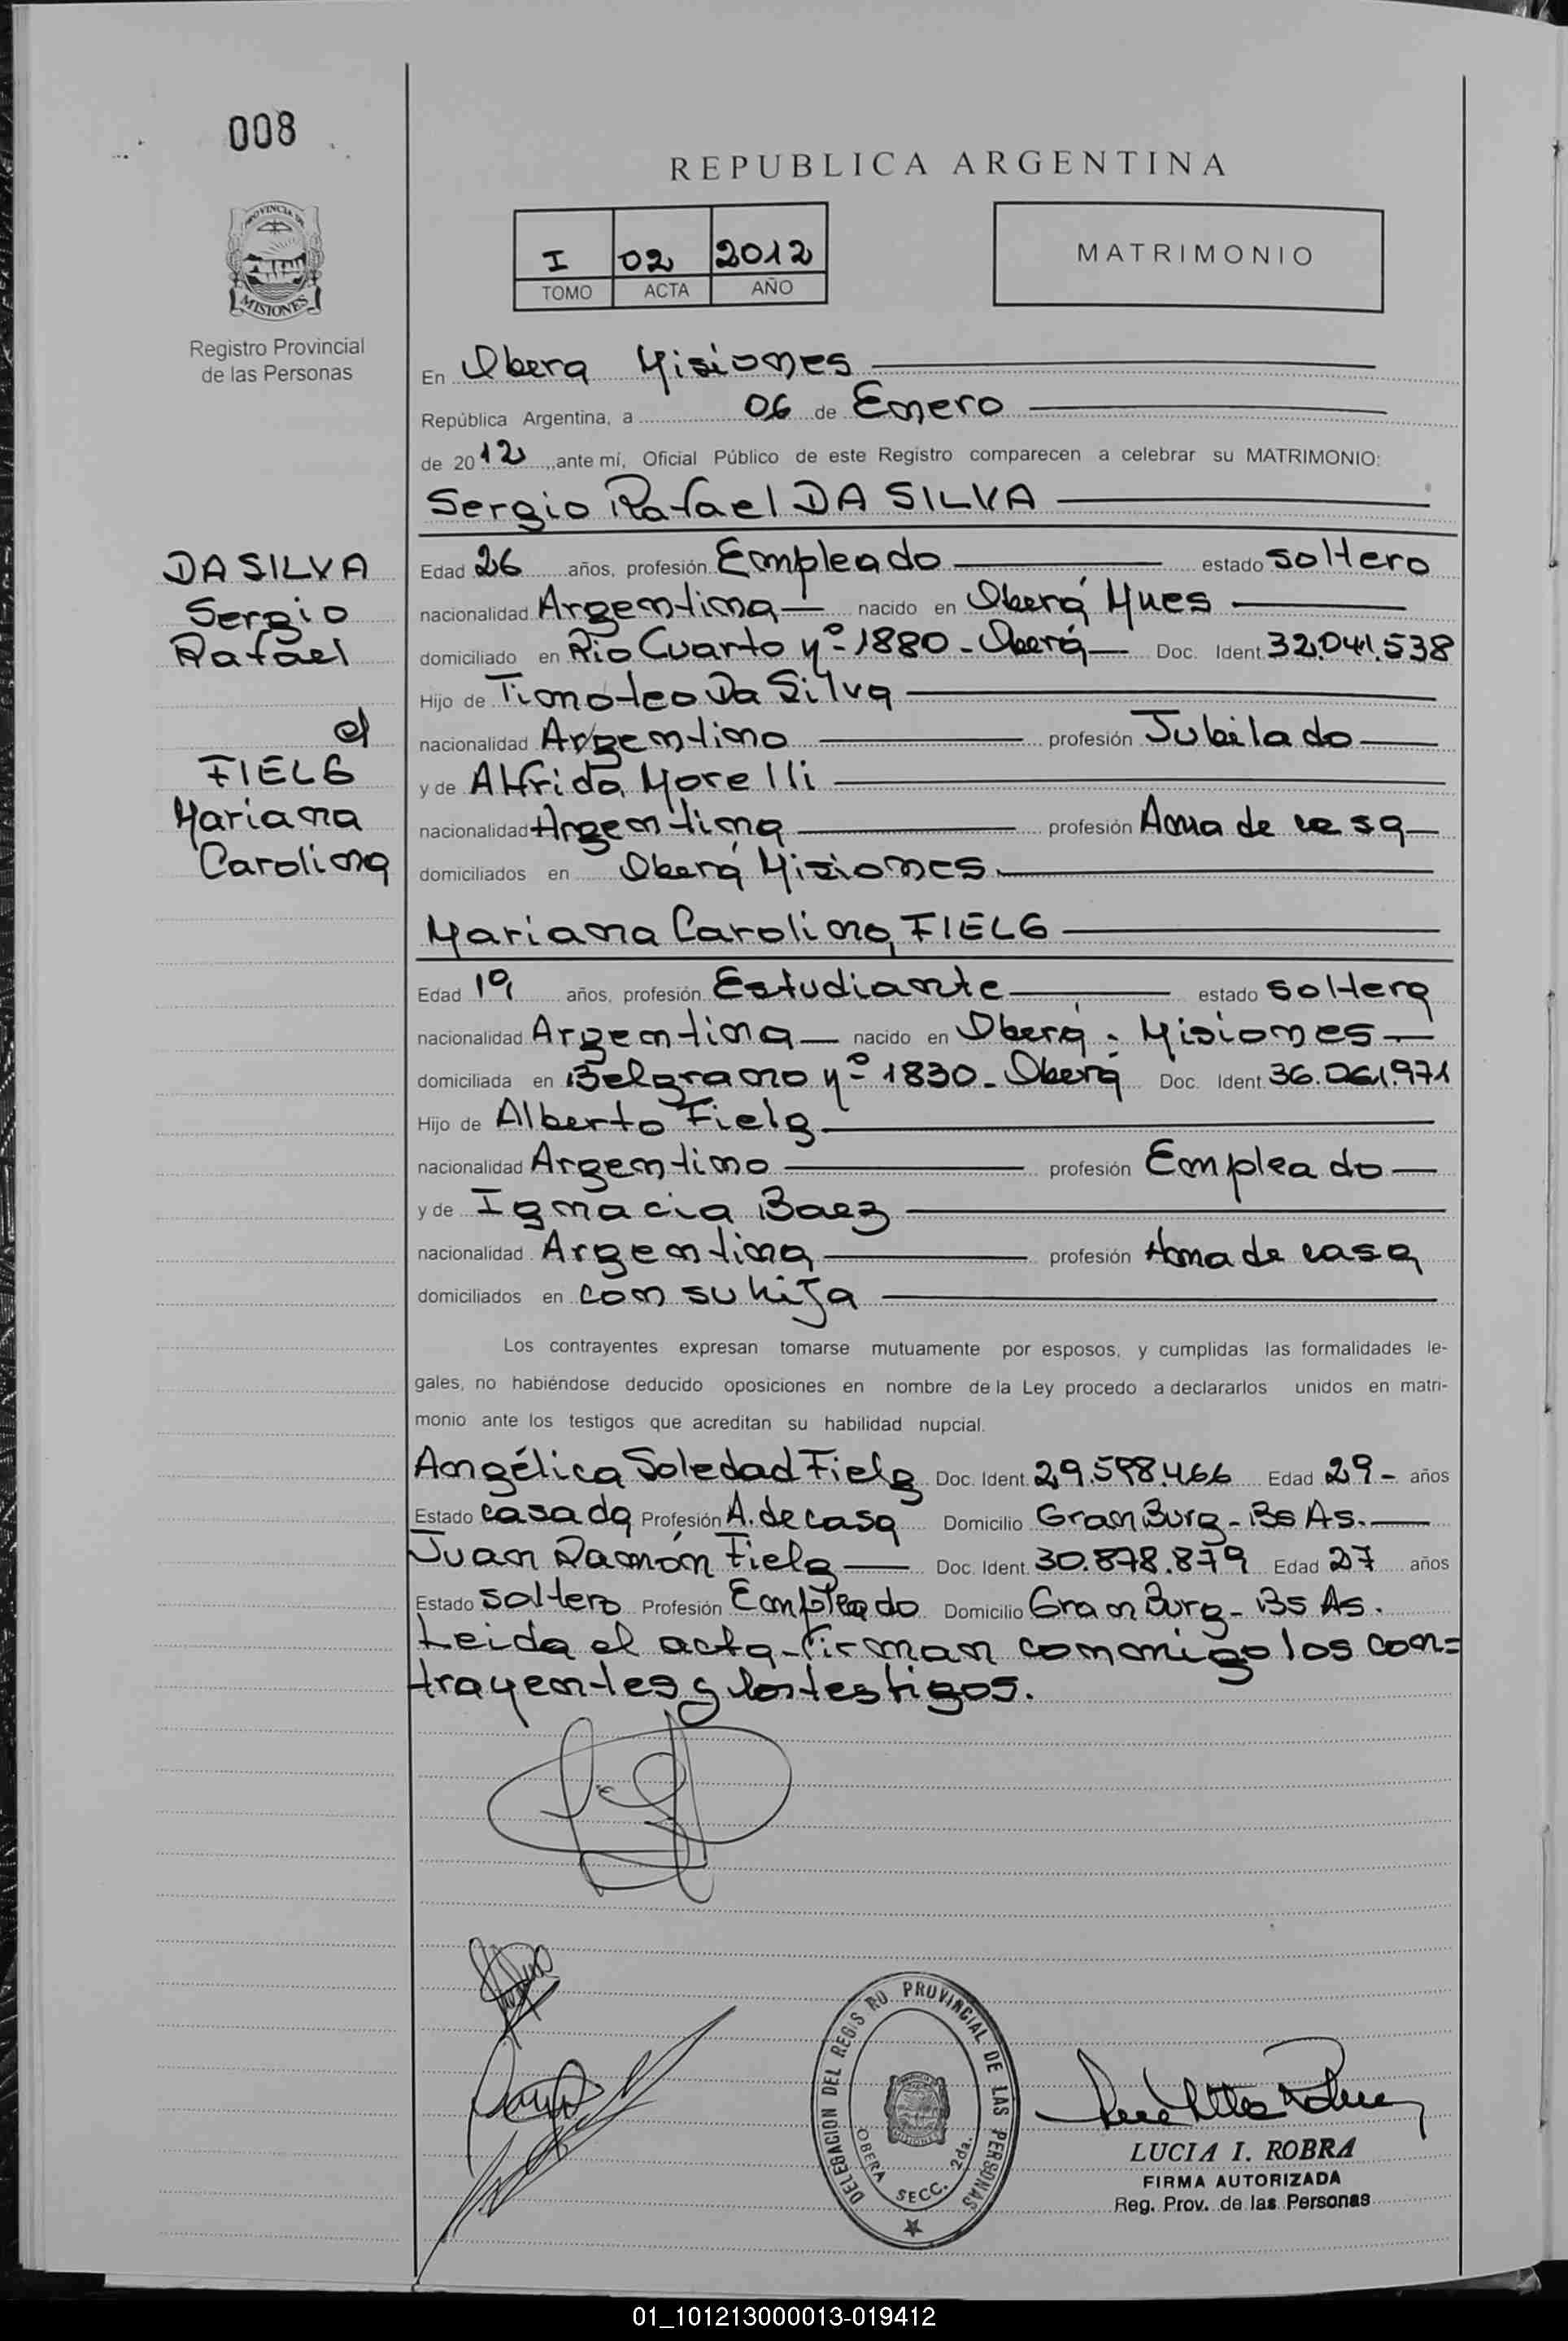 008
REPUBLICA ARGENTINA
PROVINCIA DE
MISIONES
I 02 2012
TOMO ACTA AÑO
MATRIMONIO
Registro Provincial
de las Personas
En Oberá Misiones
República Argentina, a 06 de Enero
de 2012, ante mí, Oficial Público de este Registro comparecen a celebrar su MATRIMONIO:
Sergio Rafael DA SILVA
DA SILVA
Sergio
Rafael
el
FIELG
Mariana
Carolina
Edad 26 años, profesión Empleado estado soltero
nacionalidad Argentina nacido en Oberá Mnes
domiciliado en Rio Cuarto Nº 1880 - Oberá Doc. Ident. 32.041.538
Hijo de Timoteo Da Silva
nacionalidad Argentino profesión Jubilado
y de Alfrida Morelli
nacionalidad Argentina profesión Ama de casa
domiciliados en Oberá Misiones
Mariana Carolina FIELG
Edad 19 años, profesión Estudiante estado soltera
nacionalidad Argentina nacido en Oberá - Misiones
domiciliada en Belgrano Nº 1830 - Oberá Doc. Ident. 36.061.971
Hijo de Alberto Fielg
nacionalidad Argentino profesión Empleado
y de Ignacia Baez
nacionalidad Argentina profesión Ama de casa
domiciliados en con su hija
Los contrayentes expresan tomarse mutuamente por esposos, y cumplidas las formalidades le-
gales, no habiéndose deducido oposiciones en nombre de la Ley procedo a declararlos unidos en matri-
monio ante los testigos que acreditan su habilidad nupcial.
Angélica Soledad Fielg Doc. Ident. 29.598.466 Edad 29 - años
Estado casada Profesión A. de casa Domicilio Gran Burg - Bs As.
Juan Ramón Fielg Doc. Ident. 30.878.879 Edad 27 años
Estado soltero Profesión Empleado Domicilio Gran Burg - Bs As.
Leida el acta - firman conmigo los con=
trayentes y los testigos.
DELEGACION DEL REGISTRO PROVINCIAL DE LAS PERSONAS
OBERA SECC. 2da.
LUCIA I. ROBRA
FIRMA AUTORIZADA
Reg. Prov. de las Personas
01_101213000013-019412